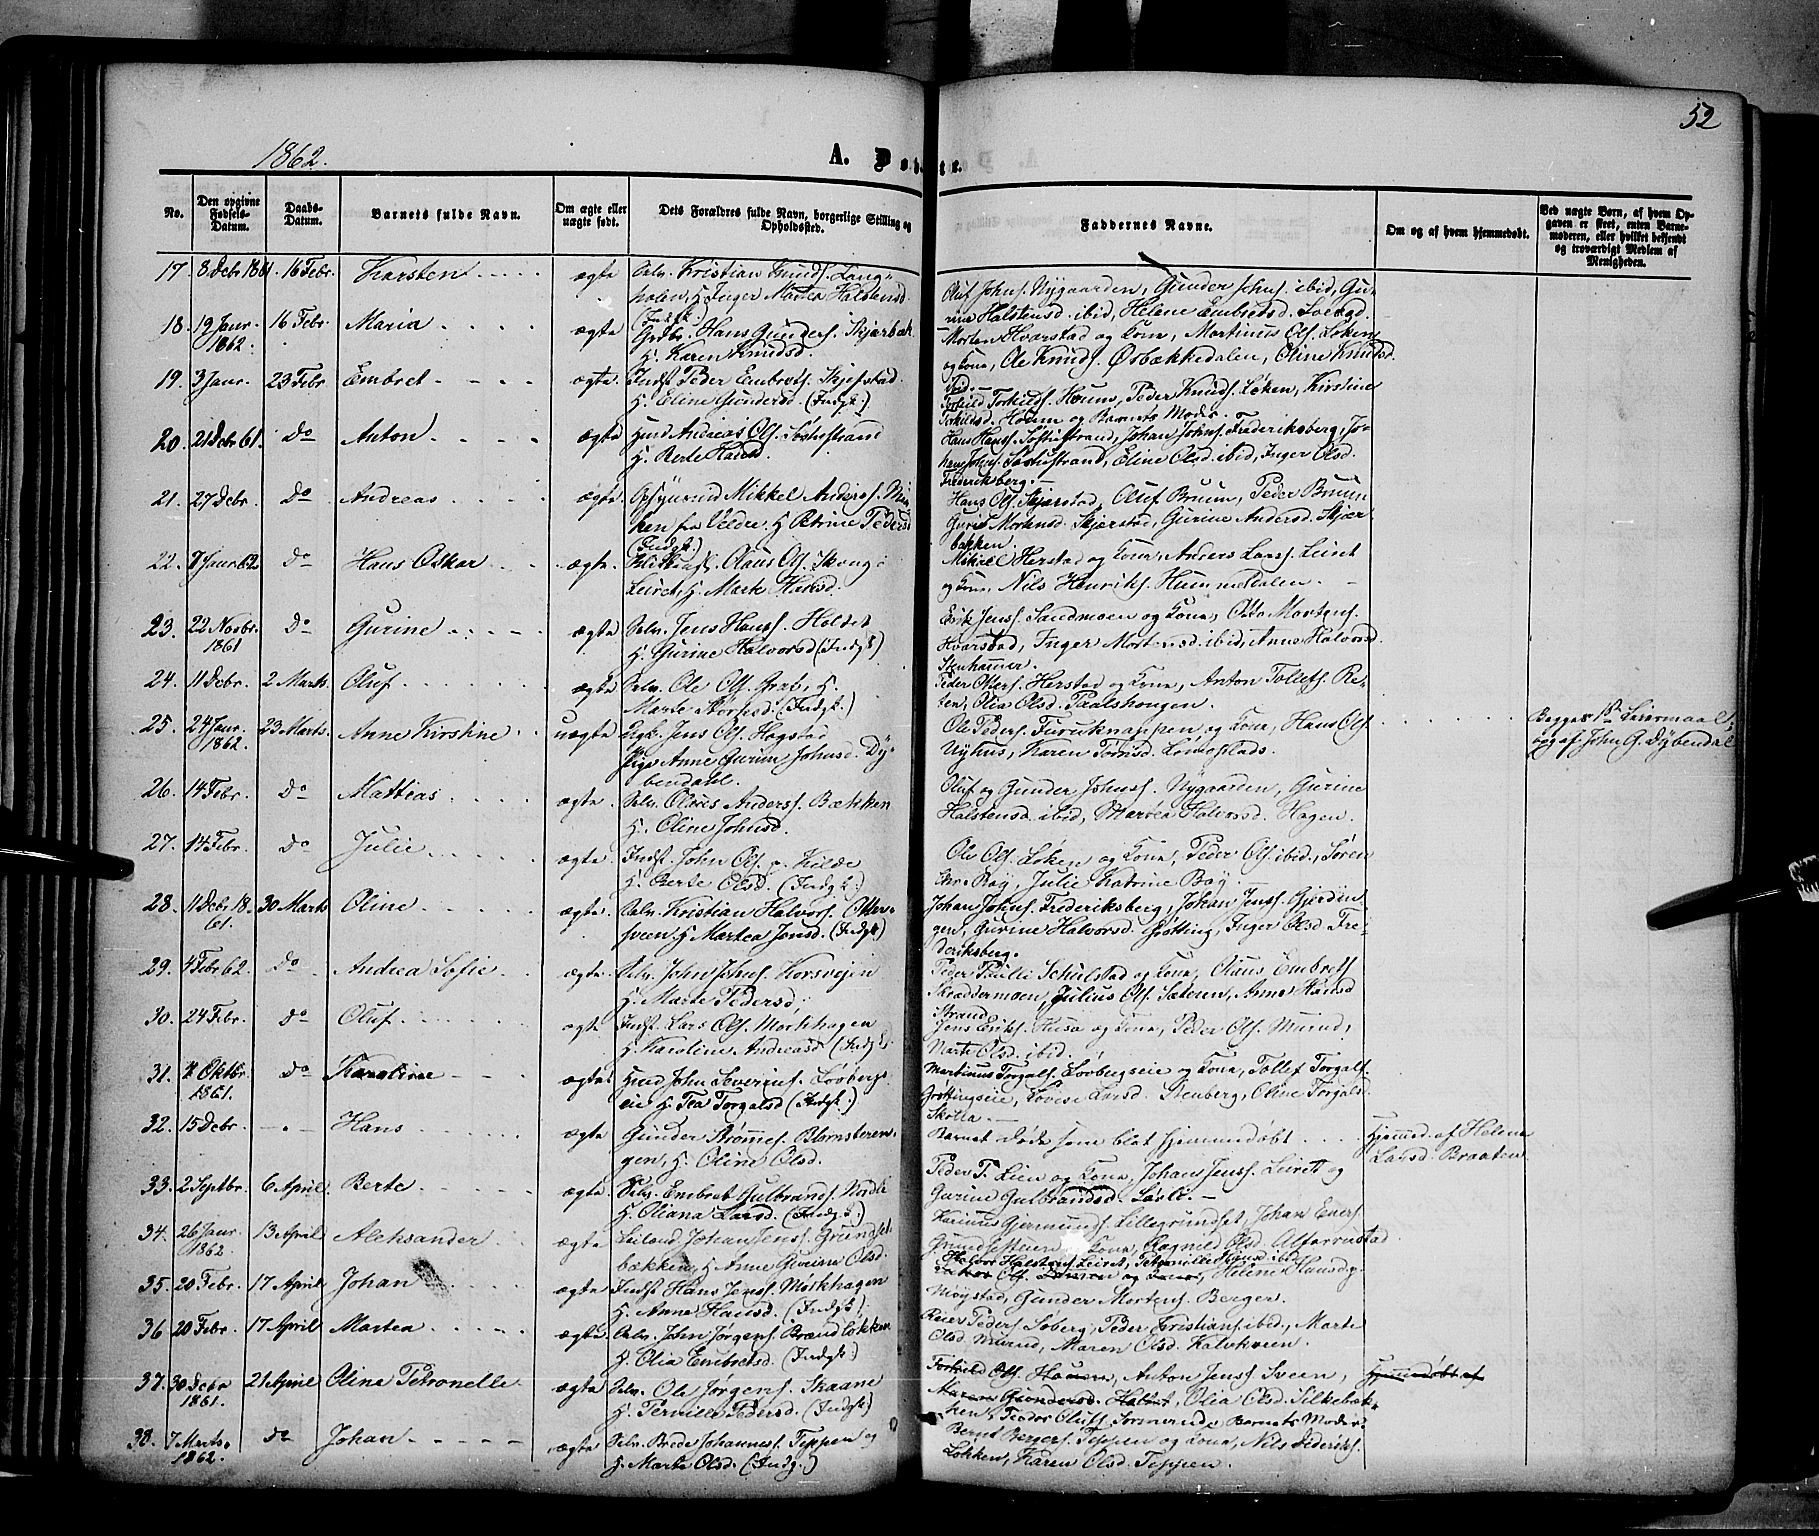 52
1862.
A. Døbte.
No.
Den opgivne Fødsels-Datum.
Daabs-Datum.
Barnets fulde Navn.
Om ægte eller uægte født.
Dets Forældres fulde Navn, borgerlige Stilling og Opholdssted.
Faddernes Navne.
Om og af hvem hjemmedøbt.
Ved uægte Børn, af hvem Opgaven er skeet, enten Barnemoderen, eller hvilket bekjendt og troværdigt Medlem af Menigheden.
17. 8 Debr 1861. 16 Febr. Karsten ægte Selv. Kristian Knuds.
H. Inger Martea Halstensd.
Oluf Johns. Nygaarden, Gunder Johns. ibid, Gu-
rine Halstensd. ibid, Helene Embretsd.
18. 19 Janr. 1862. 16 Febr. Maria ægte Grdbr. Hans Gunders. Skjærbæk
H. Karen Knudsd.
Morten Hvarstad og Kone, Martinus Ols. Løken
og Kone, Ole Knuds. Ørbækkedalen, Oline Knudsd.
ibid.
19. 3 Janr. 23 Febr Embret ægte Indst Peder Embrets. Skjefstad
H. Eline Gundersd. (Indgk.)
Torkild Torkilds. Houm, Peder Knuds. Løken, Kirstine
Torkildsd. Houm og Barnets Moder.
20. 21 Debr 61. Do Anton ægte Huusm. Andreas Ols.
H. Berte Hansd.
Hans Hans. Johan Johns. Frederiksberg, Jo-
Eline Olsd. ibid, Inger Olsd.
Frederiksberg.
21. 27 Debr. Do Andreas ægte Mikkel Anders.
fra Veldre, H. Petrine Pedersd
(Indgk.)
Hans Ols. Skjærstad, Oluf Bruun, Peder Bruun
Guri Mortensd. Skjærstad, Gurine Andersd. Skjær-
bækken.
22. 7 Janr. 62. Do Hans Oskar ægte Olaus Ols.
Leiret, H. Marte Hansd.
Mikkel Herstad og Kone, Anders Lars. Leiret
og Kone, Nils Henriks. Hummeldalen.
23. 22 Novbr. 1861 Do Gurine ægte Selv. Jens Hans. Holdet
H. Gurine Halvorsd (Indgk.)
Erik Jens. Sandmoen og Kone, Otto Mortens.
Hvarstad, Inger Mortensd. ibid, Anne Halvorsd.
Stenhammer.
24. 11 Debr. 2 Marts. Oluf ægte Selv. Ole Ols. Grab, H.
Marte Storksd. (Indgk.)
Peder Otters. Herstad og Kone, Anton Tollefs. Re-
ten, Olia Olsd. Paalshougen.
25. 24 Janr. 1862. 23 Marts. Anne Kirstine uægte Ugk. Jens Ols. Hogstad
Pige Anne Gurine Johnsd. Dy-
bendahl.
Ole Peders. Furuknappen og Kone, Hans Ols.
Nyhus, Karen
Begges 1ste Leiermaal,
opg. af John G. Dybendal
26. 14 Febr. Do Mattias ægte Selv. Olaus Anders. Bækken
H. Oline Johnsd.
Oluf og Gunder Johns. Nygaarden, Gurine
Halstensd. ibid, Marthea Halvorsd. Hagen.
27. 14 Febr. Do Julie ægte Indst. John Ols. Kilde
H. Berte Olsd. (Indgk.)
Ole Ols. Løken og Kone, Peder Ols. ibid., Søren
Chr. Bøy, Julie Katrine Bøy.
28. 11 Debr. 1861. 30 Marts Oline ægte Selv. Kristian Halvors. Otter-
sveen H. Martea Jensd. (Indgk.)
Johan Johns. Frederiksberg, Johan Jens. Gjerdin-
gen, Gurine Halvorsd. Grøtting, Inger Olsd. Fre-
deriksberg.
29. 4 Febr. 62. Do Andrea Sofie ægte Selv. John Johns. Korsvejen
H. Marte Pedersd.
Peder Paulli Schulstad og Kone, Olaus Embrets
Skræddermoen, Julius Ols. Sæteren, Anne Hansd
Strand
30. 24 Febr. Do Oluf ægte Indst. Lars Ols. Mørkhagen
H. Karoline Andreasd (Indgk.)
Jens Eriks. Husa og Kone, Peder Ols. Myrind,
Marte Olsd. ibid.
31. 4 Oktbr. 1861. Do Karoline ægte Husd. John Severins. Lovbergs-
eie H. Tea Torgalsd (Indgk.)
Martinus Torgals. Lovbergseie og Kone, Tollef Torgals.
Grøttingseie, Lovise Larsd. Stenberg, Oline Torgalsd.
Skolla.
32. 15 Debr. Hans ægte Gunder Strømme Blomsteren-
gen, H. Oline Olsd.
Barnet døde som blot hjemmedøbt
Hjemmed. af Helene
Larsd. Braaten
33. 2 Septbr. 6 April Berte ægte Selv. Embret Gulbrands. Nordli
H. Oliana Larsd. (Indgk.)
Peder T. Lien og Kone, Johans Jens. Leiret og
Gurine Gulbrandsd. Løsli.
34. 26 Janr. 1862. 13 April Aleksander ægte Leilænd. Johan Jens. Grundset-
bækken, H. Anne Gurine Olsd.
Karinus Gjermunds. Lillegrundset, Johan Eners.
Grundsetsteien og Kone, Ragnild Olsd. Alfarrustad
35. 20 Febr. 17 April Johan ægte Indst Hans Jens. Mørkhagen
H. Anne Hansd. (Indgk.)
Halvor Halstens. Leiret,
og Kone, Helene Hansd.
Møystad, Gunder Mortens. Berger.
36. 20 Febr. 17 April Martea ægte Selv. John Jørgens. Brændløkken
H. Olia Embretsd. (Indgk.)
Reier Peders. Søberg, Peder Kristians. ibid., Marte
Olsd. Myrind, Maren Olsd. Kalvkveen.
37. 30 Debr 1861. 21 April Olina Petronelle ægte Selv. Ole Jørgens. Skaane
H. Pernille Pedersd. (Indgk.)
Torkild Ols. Houm, Anton Jens. Sveen,
Maren Gundersd. Holset, Olia Olsd. Silkebæk-
ken, Teodor Olufs. Sørmerud, Barnets Moder.
Hjemmedøbt af
38. 7 Marts. 1862. Do Johan ægte Selv. Brede Johannes. Teppen og
H. Marte Olsd. (Indg.)
Bernt Berger Teppen og Kone, Nils Dideriks.
Løkken, Karen Olsd. Teppen.